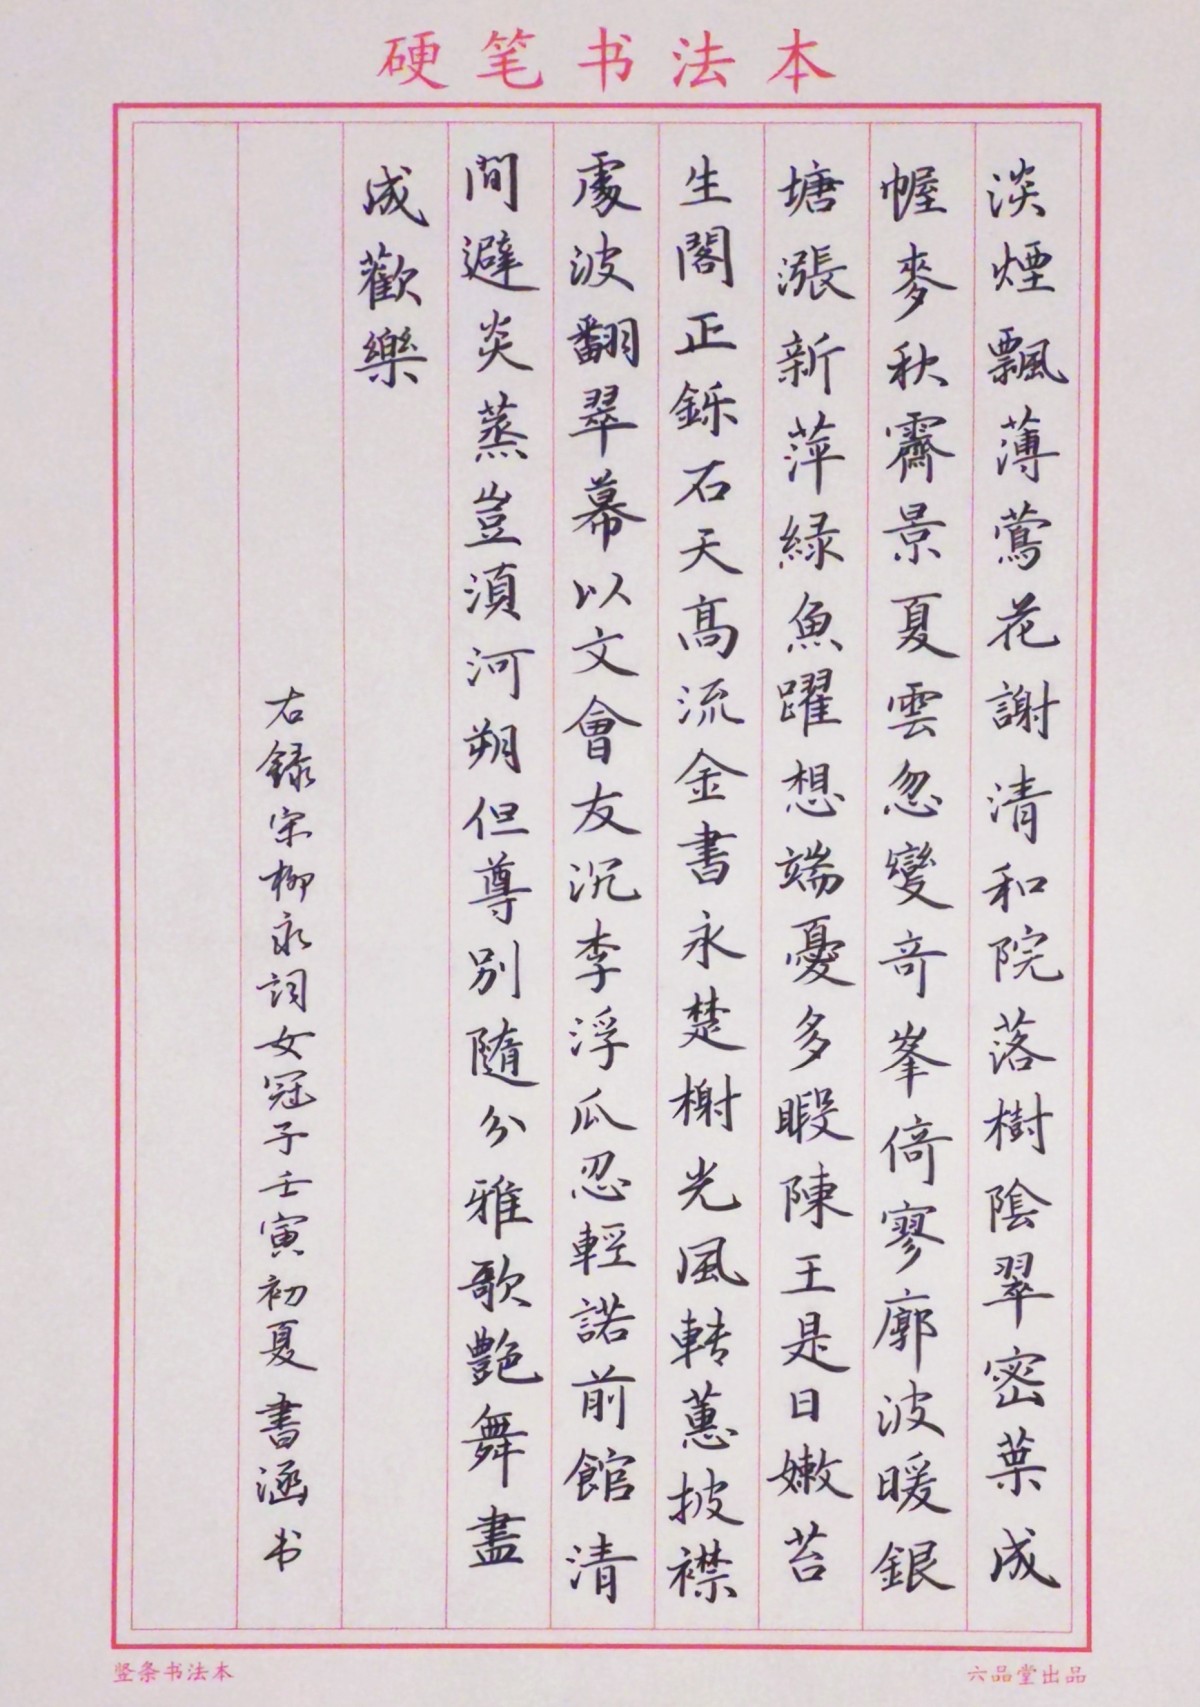 硬笔书法本
淡煙飄薄鶯花謝清和院落樹陰翠密葉成
幄麥秋霽景夏雲忽變奇峯倚寥廓波暖銀
塘漲新萍緑魚躍想端憂多暇陳王是日嫩苔
生閣正鑠石天高流金書永楚榭光風轉蕙披襟
處波翻翠幕以文會友沉李浮瓜忍輕諾前館清
間避炎蒸豈須河朔但尊別隨分雅歌艷舞盡
成歡樂
右録宋柳永詞女冠子壬寅初夏書涵书
竖条书法本
六品堂出品